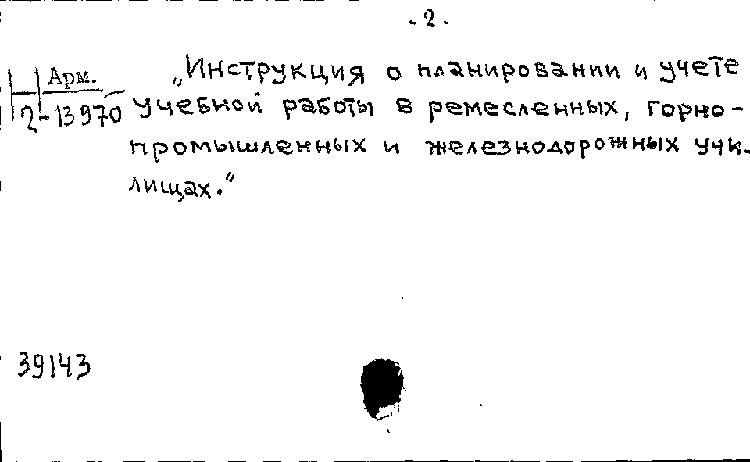 - 2 -
„Инструкция о планировании и учете
Арм.
2-13970
учебной работы в ремесленных, горно-
промышленных и железнодорожных учи-
лищах."
39143